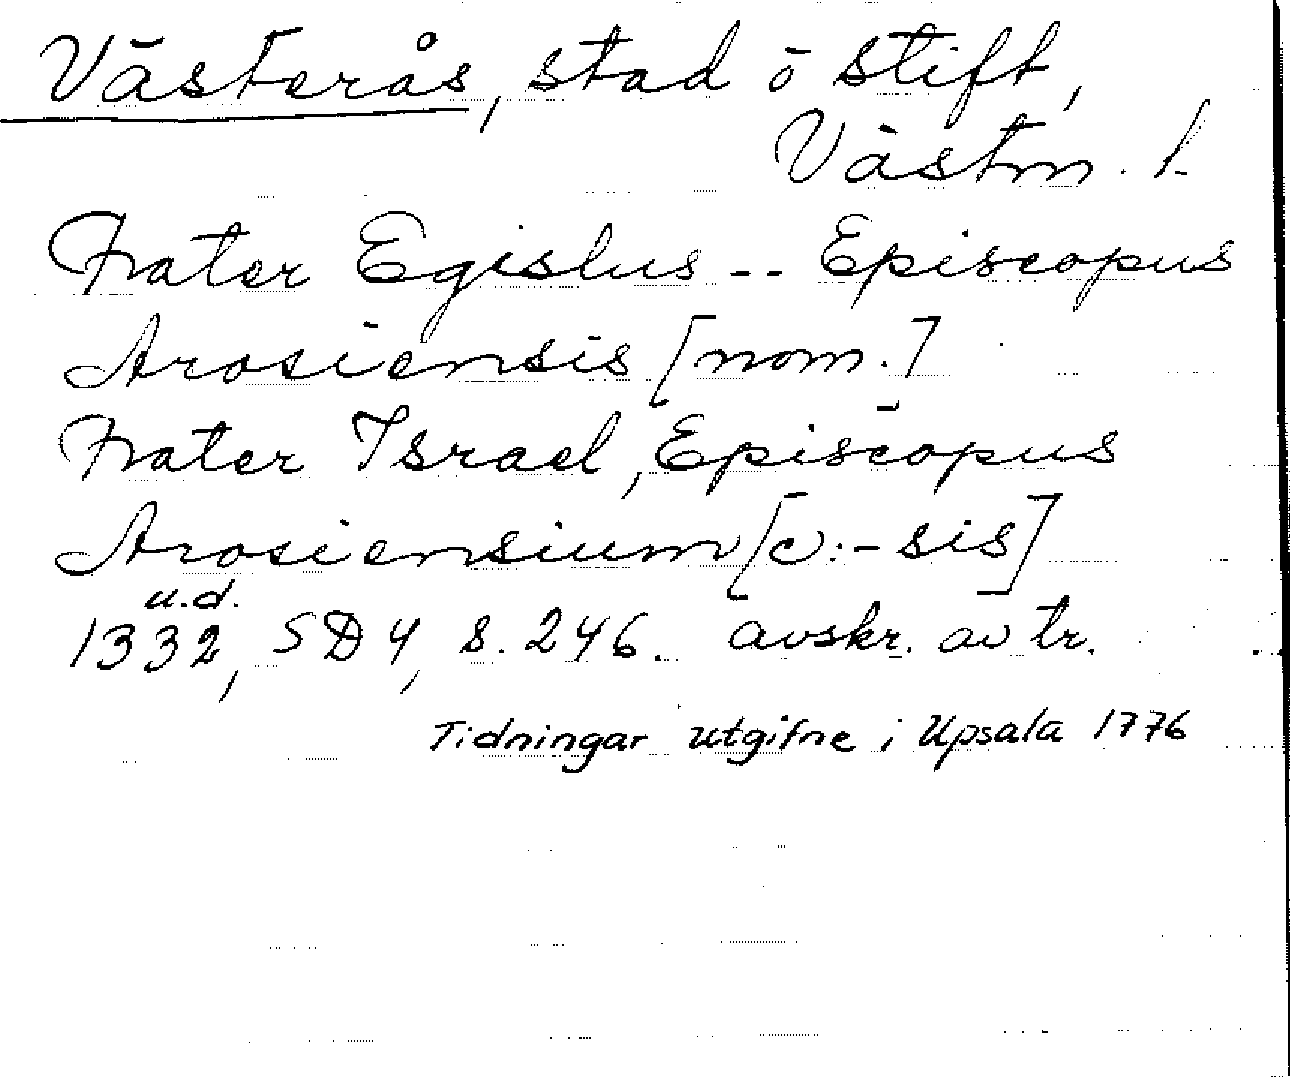 Västerås, stad o stift,
Västm. l.
Frater Egislus -- Episcopus
Arosiensis [nom.]
Frater Israel, Episcopus
Arosiensium [ɔ:-sis]
u.d.
1332, SD 4, s. 246. avskr. av tr.
Tidningar utgifne i Upsala 1776